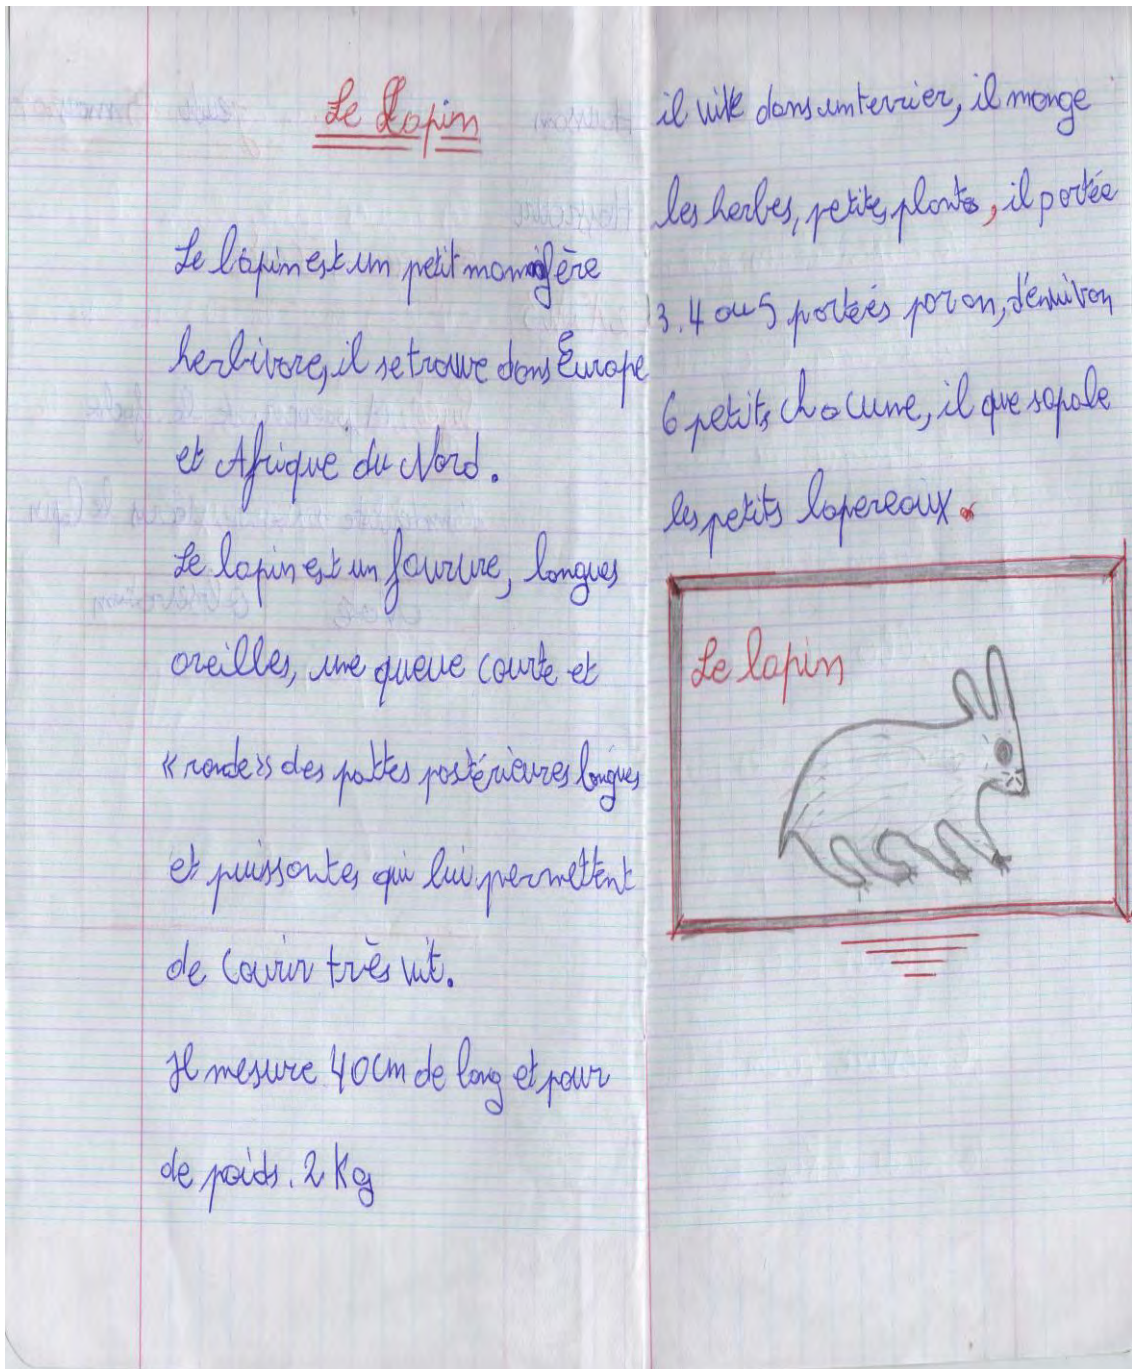 Le Lapin
Le lapin est un petit mammifère
herbivore, il se trouve dans Europe
et Afrique du Nord.
Le lapin est un fourure, longues
oreilles, une queue courte et
« ronde » des pattes postérieures longues
et puissantes qui lui permettent
de courir très vit.
Il mesure 40cm de long et pour
de poids. 2 Kg
il vit dans un terrier, il mange
les herbes, petites plantes, il portée
3. 4 ou 5 portées par an, d'environ
6 petits chacune, il que sapale
les petits lapereaux.
Le lapin